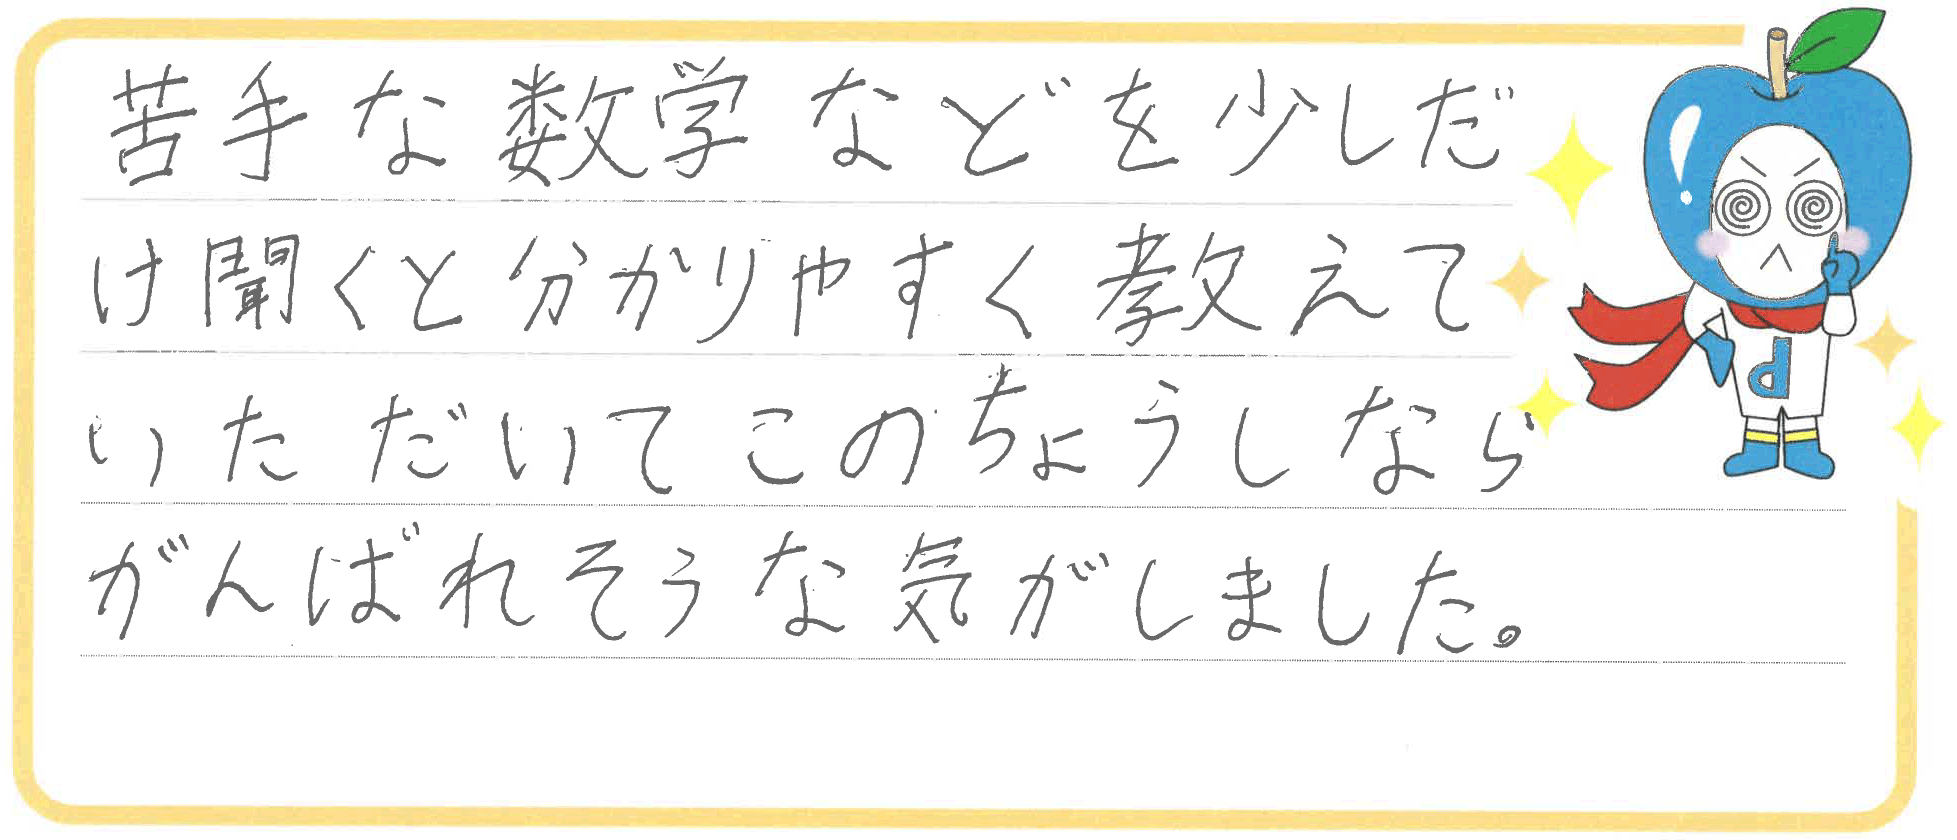 苦手な数学などを少しだ
け聞くと分かりやすく教えて
いただいてこのちょうしなら
がんばれそうな気がしました。
d